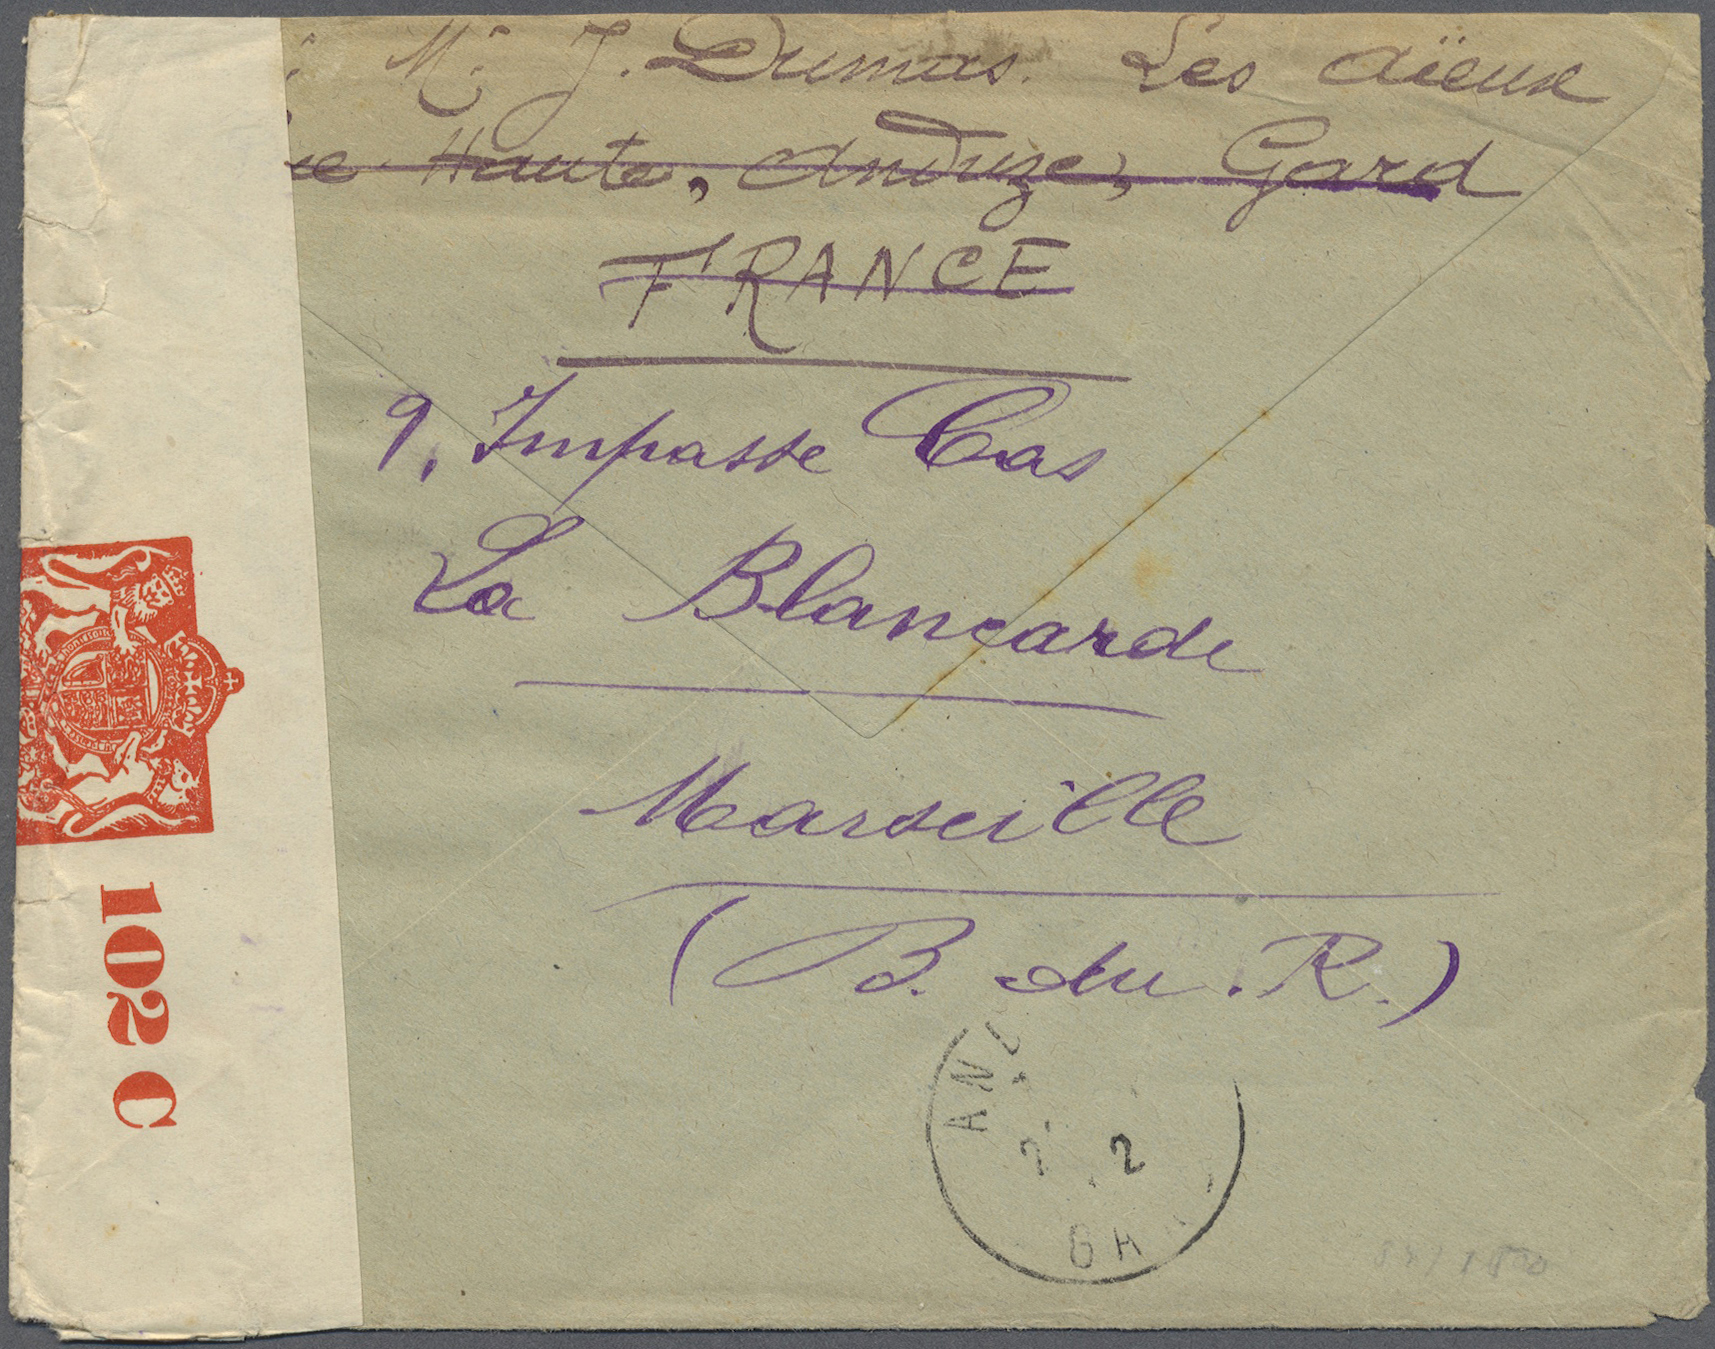 Mr J. Dumas. Les Aïeux
Haute, Anduze, Gard
FRANCE
9, Impasse Cas
La Blancarde
Marseille
(B. du. R.)
102 C
AN
2
GA